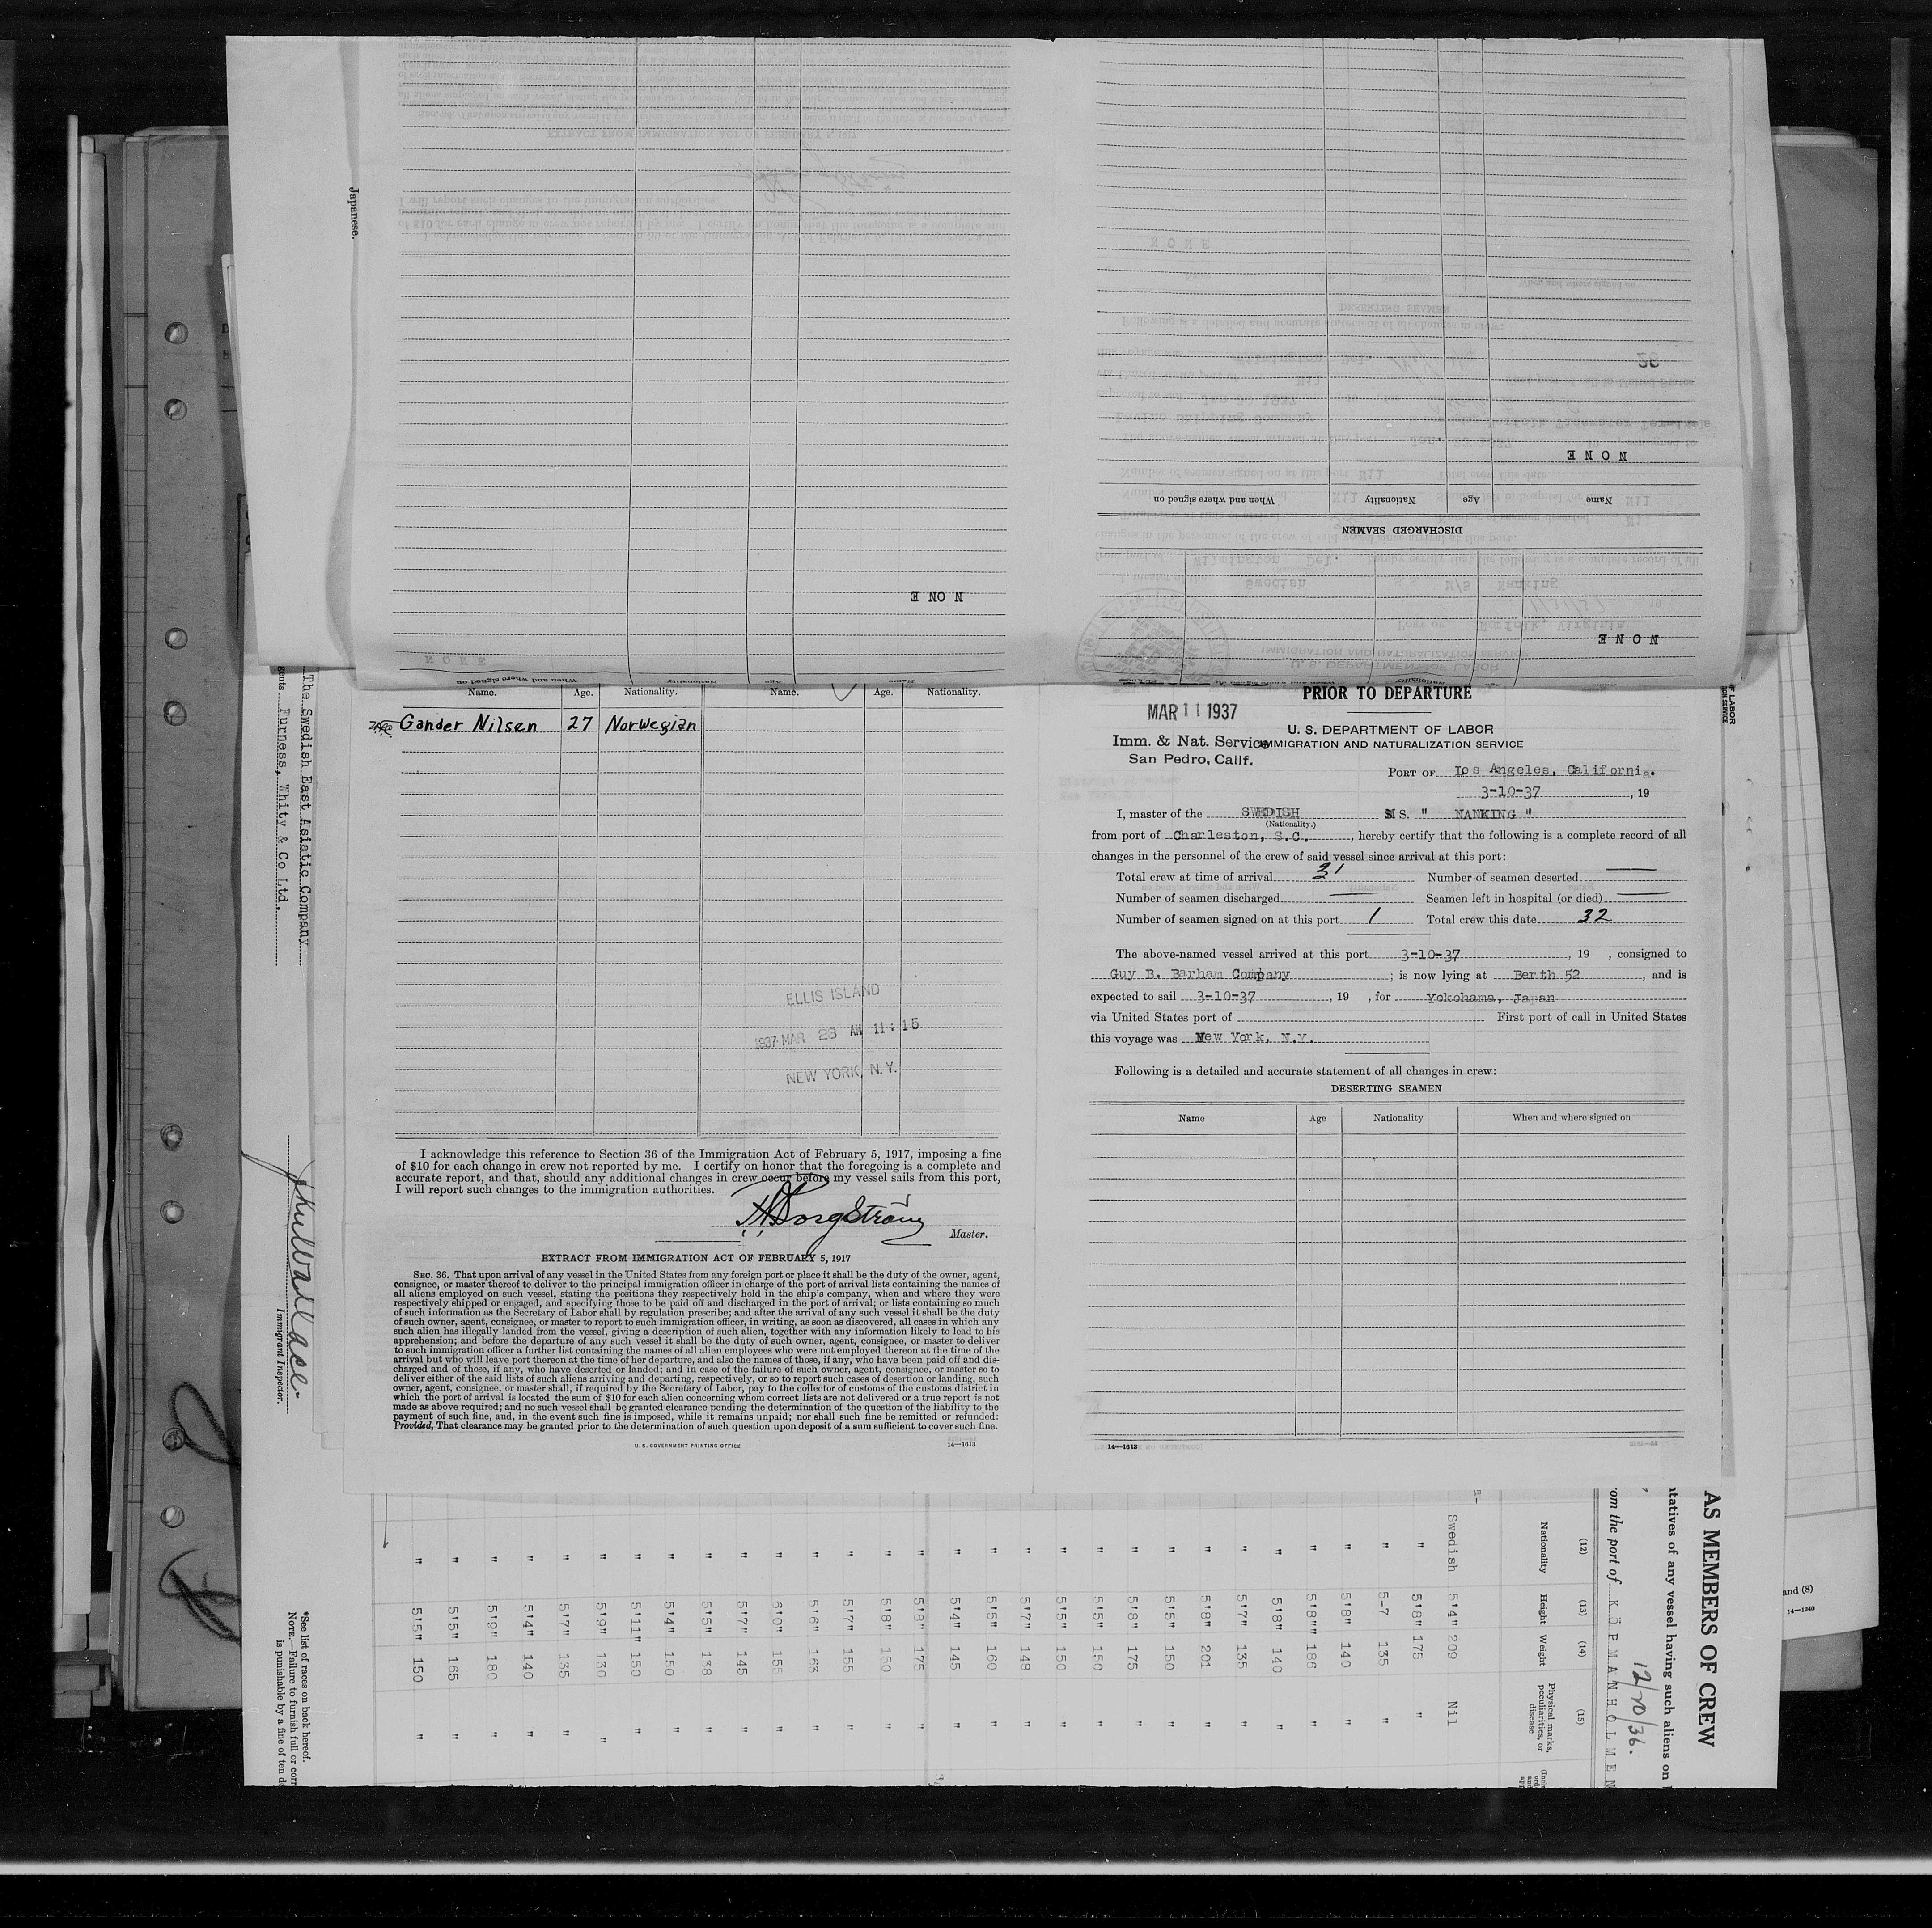 Japanese.
N O N E
N O N E
When and where signed on
Nationality
Age
Name
DISCHARGED SEAMEN
N O N E
Name. Age. Nationality. Name. Age. Nationality.
Gander Nilsen 27 Norwegian
ELLIS ISLAND
1937 MAR 23 AM 11:15
NEW YORK, N.Y.
I acknowledge this reference to Section 36 of the Immigration Act of February 5, 1917, imposing a fine
of $10 for each change in crew not reported by me. I certify on honor that the foregoing is a complete and
accurate report, and that, should any additional changes in crew occur before my vessel sails from this port,
I will report such changes to the immigration authorities.
Master.
EXTRACT FROM IMMIGRATION ACT OF FEBRUARY 5, 1917
SEC. 36. That upon arrival of any vessel in the United States from any foreign port or place it shall be the duty of the owner, agent,
consignee, or master thereof to deliver to the principal immigration officer in charge of the port of arrival lists containing the names of
all aliens employed on such vessel, stating the positions they respectively hold in the ship's company, when and where they were
respectively shipped or engaged, and specifying those to be paid off and discharged in the port of arrival; or lists containing so much
of such information as the Secretary of Labor shall by regulation prescribe; and after the arrival of any such vessel it shall be the duty
of such owner, agent, consignee, or master to report to such immigration officer, in writing, as soon as discovered, all cases in which any
such alien has illegally landed from the vessel, giving a description of such alien, together with any information likely to lead to his
apprehension; and before the departure of any such vessel it shall be the duty of such owner, agent, consignee, or master to deliver
to such immigration officer a further list containing the names of all alien employees who were not employed thereon at the time of the
arrival but who will leave port thereon at the time of her departure, and also the names of those, if any, who have been paid off and dis-
charged and of those, if any, who have deserted or landed; and in case of the failure of such owner, agent, consignee, or master so to
deliver either of the said lists of such aliens arriving and departing, respectively, or so to report such cases of desertion or landing, such
owner, agent, consignee, or master shall, if required by the Secretary of Labor, pay to the collector of customs of the customs district in
which the port of arrival is located the sum of $10 for each alien concerning whom correct lists are not delivered or a true report is not
made as above required; and no such vessel shall be granted clearance pending the determination of the question of the liability to the
payment of such fine, and, in the event such fine is imposed, while it remains unpaid; nor shall such fine be remitted or refunded:
Provided, That clearance may be granted prior to the determination of such question upon deposit of a sum sufficient to cover such fine.
U. S. GOVERNMENT PRINTING OFFICE 14—1613
PRIOR TO DEPARTURE
MAR 11 1937
Imm. & Nat. Service
San Pedro, Calif.
U. S. DEPARTMENT OF LABOR
IMMIGRATION AND NATURALIZATION SERVICE
PORT OF Los Angeles, California.
3-10-37, 19
I, master of the SWEDISH MS. " NANKING "
(Nationality.)
from port of Charleston, S.C., hereby certify that the following is a complete record of all
changes in the personnel of the crew of said vessel since arrival at this port:
Total crew at time of arrival 31 Number of seamen deserted —
Number of seamen discharged — Seamen left in hospital (or died) —
Number of seamen signed on at this port 1 Total crew this date 32
The above-named vessel arrived at this port 3-10-37, 19 , consigned to
Guy B. Barham Company; is now lying at Berth 52, and is
expected to sail 3-10-37, 19 , for Yokohama, Japan
via United States port of First port of call in United States
this voyage was New York, N.Y.
Following is a detailed and accurate statement of all changes in crew:
DESERTING SEAMEN
Name Age Nationality When and where signed on
14—1613
The Swedish East Asiatic Company
Furness, Whity & Co Ltd.
Immigrant Inspector.
*See list of races on back hereof.
NOTE.—Failure to furnish full or corr
is punishable by a fine of ten d
AS MEMBERS OF CREW
ntatives of any vessel having such aliens on
12/20/36.
om the port of KÖPMANHOLMEN
(12) (13) (14) (15)
Nationality Height Weight Physical marks, peculiarities, or disease
Swedish 5'4" 209 Nil
" 5'8" 175 "
" 5-7 135 "
" 5'8" 140 "
" 5'8" 186 "
" 5'8" 140 "
" 5'7" 135 "
" 5'8" 201 "
" 5'5" 150 "
" 5'8" 175 "
" 5'5" 150 "
" 5'5" 150 "
" 5'7" 149 "
" 5'5" 160 "
" 5'4" 145 "
" 5'8" 175 "
" 5'8" 150 "
" 5'7" 155 "
" 5'6" 163 "
" 6'0" 155 "
" 5'7" 145 "
" 5'5" 138 "
" 5'4" 150 "
" 5'11" 150 "
" 5'9" 130 "
" 5'7" 135 "
" 5'4" 140 "
" 5'9" 180 "
" 5'5" 165 "
" 5'5" 150 "
and (8)
14—1240